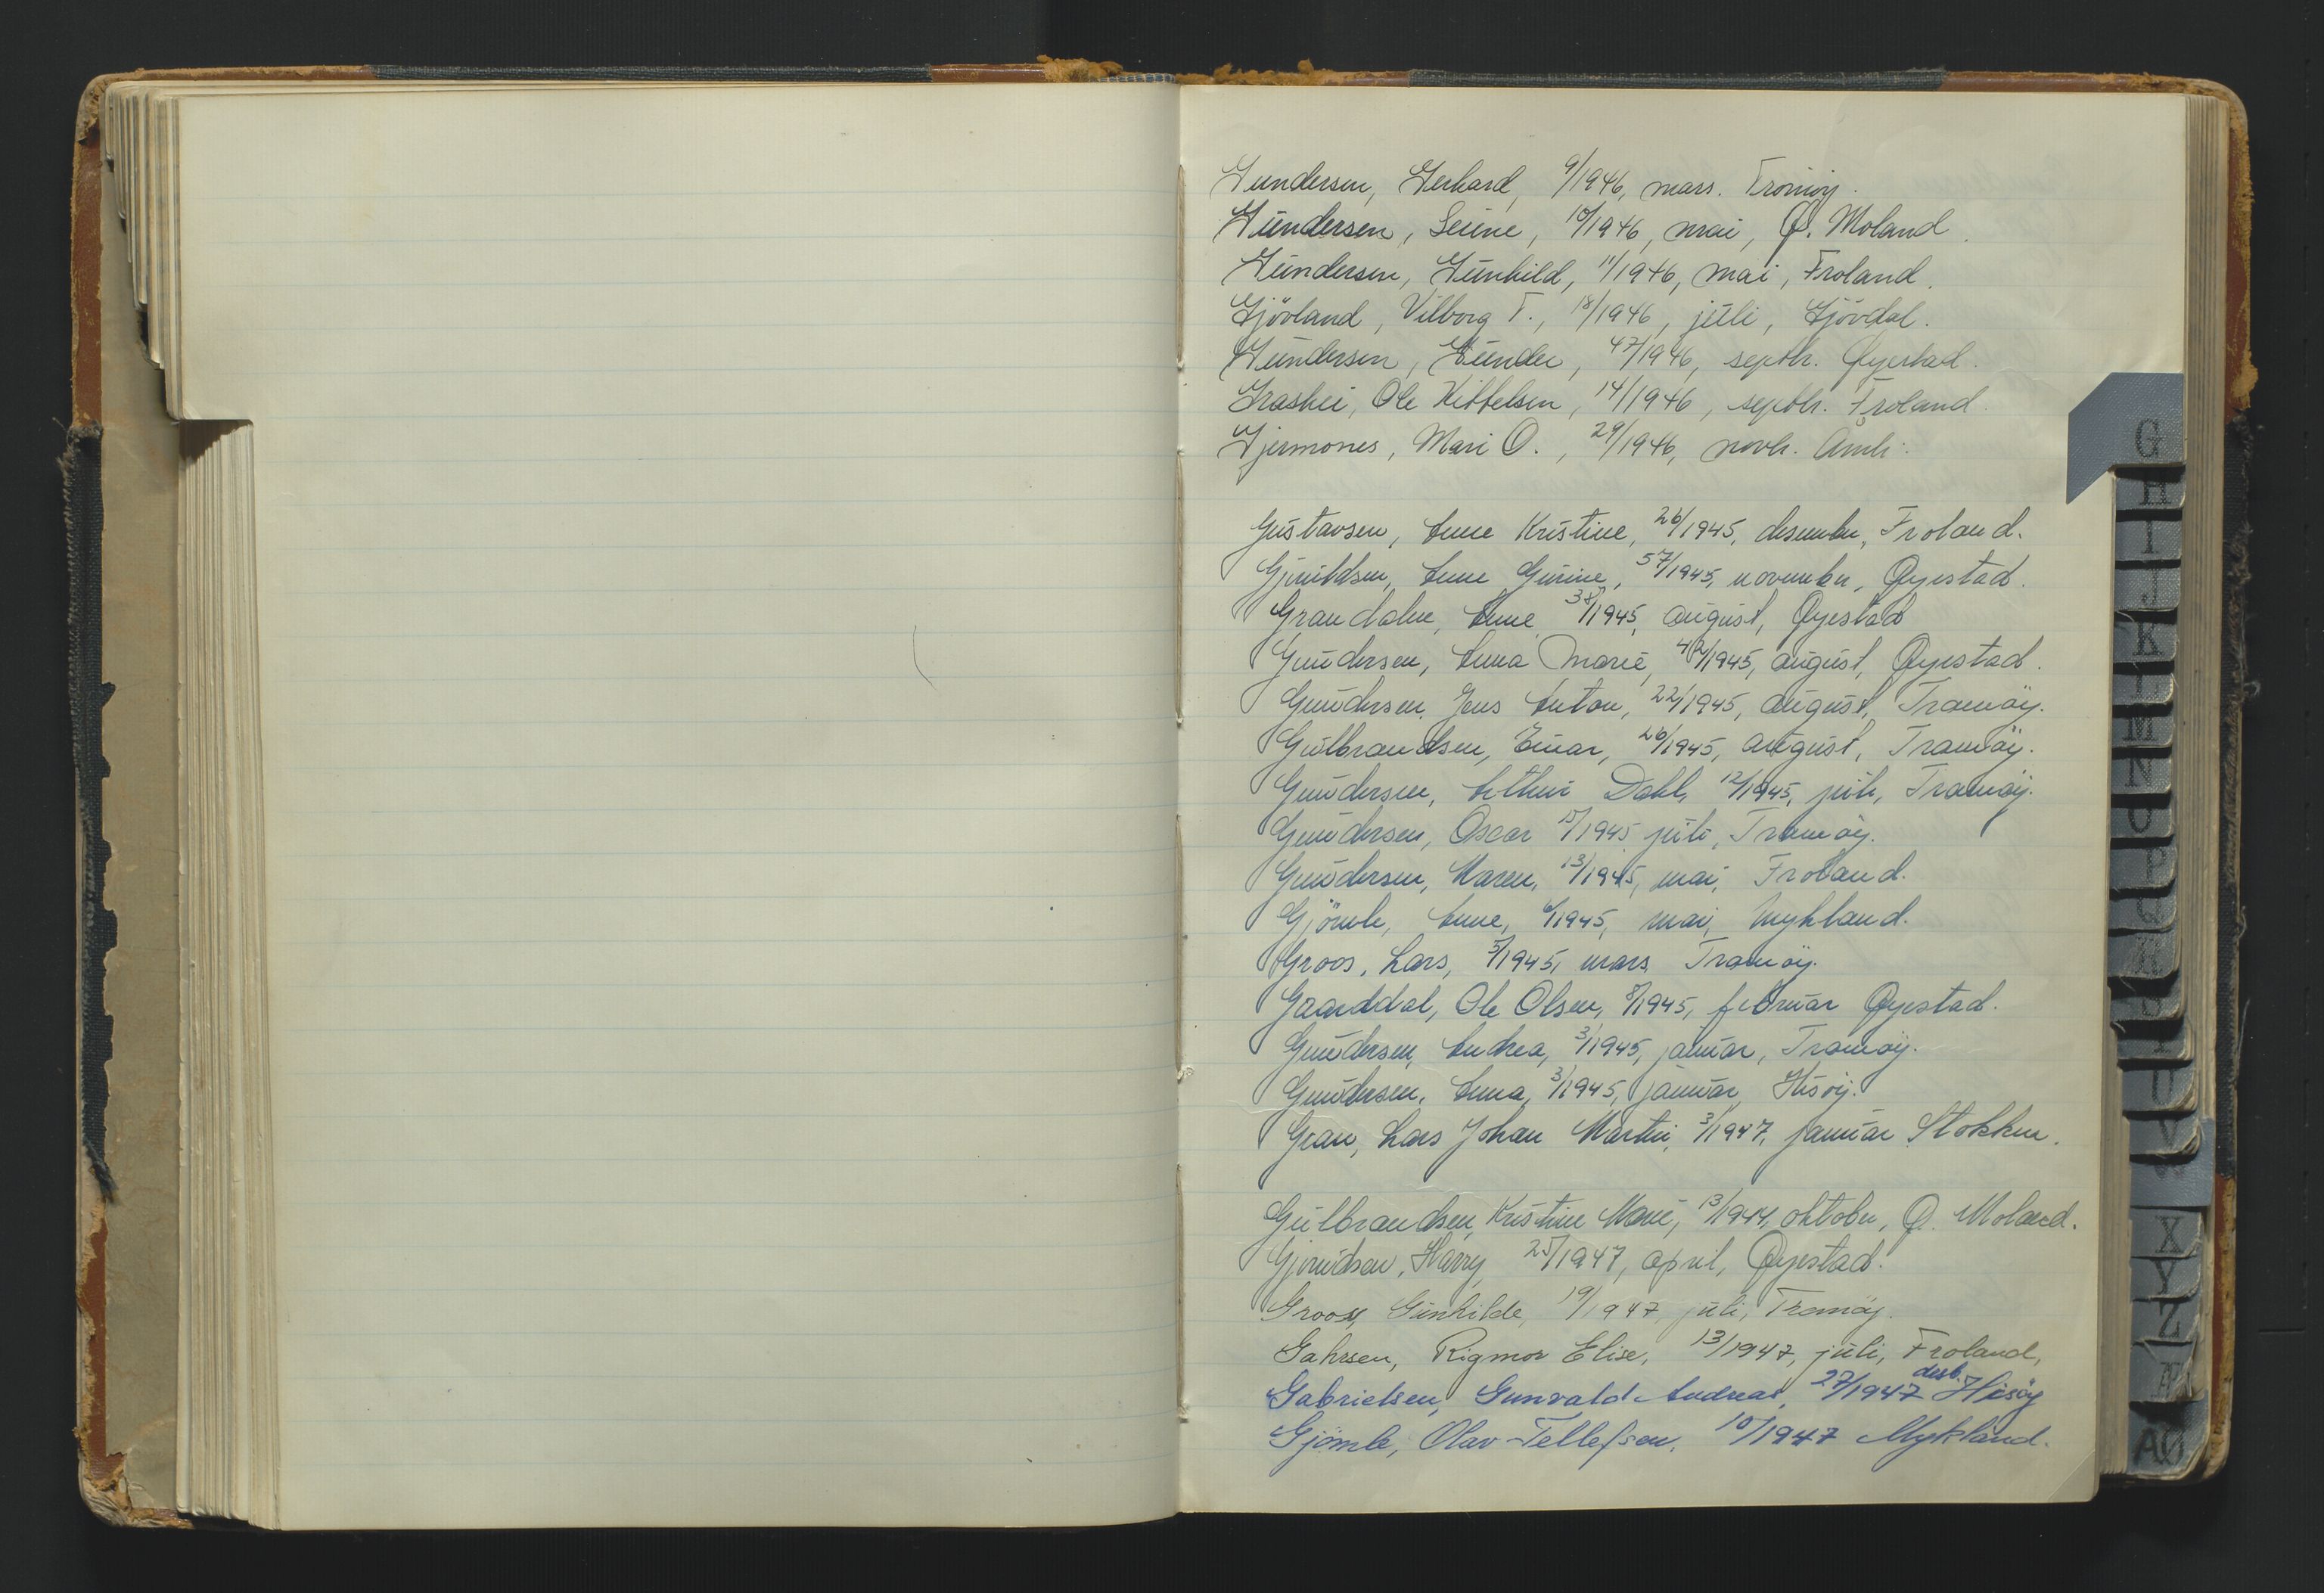 Gundersen, Gerhard, 9/1946, mars. Tromöy.
Gundersen, Seüne, 10/1946, mai, Ø. Moland.
Gundersen, Gunhild, 11/1946, mai, Froland.
Gjövland, Vilborg T., 18/1946, juli, Gjövdal.
Gundersen, Gunder, 47/1946, septbr. Øyestad.
Graskei, Ole Kittelsen, 14/1946, septbr. Froland.
Gjermones, Mari O., 29/1946, novb. Åmli.
Gustavsen, Anne Kristine, 26/1945, desember, Froland.
Gjruldsen, Anne Gurine, 57/1945, november, Øyestad.
Grandalen, Anne 38/1945, august, Øyestad
Gundersen, Anna Marie, 1945, august, Øyestad.
Gundersen, Jens Anton, 22/1945, august, Tromöy.
Gulbrandsen, Einar, 26/1945, august, Tromöy.
Gundersen, Arthur Dahl, 12/1945, juli, Tromöy.
Gundersen, Oscar 15/1945 juli, Tromöy.
Gundersen, Maren, 13/1945, mai, Froland.
Gjömle, Anne, 6/1945, mai, Mykland.
Groos, Lars, 5/1945, mars Tromöy.
Graaddal, Ole Olsen, 8/1945, februar Øyestad.
Gundersen, Andrea, 3/1945, januar, Tromöy.
Gundersen, Anna, 3/1945, januar, Hisöy.
Gran, Lars Johan Martin, 3/1947, januar Stokken.
Gulbrandsen, Kristine Marie, 13/1944, oktober, Ø. Moland.
Harry, 25/1947, april, Øyestad.
Groos, Gunhilde, 19/1947, juli, Tromöy.
Gahrsen, Rigmor Elise, 13/1947, juli, Froland,
Gabrielsen, Gunvald Andreas, 27/1947 desb. Hisöy
Gjömle, Olav Tellefsen, 10/1947 Mykland.
G
H
I
J
K
L
M
N
O
P
Q
U
V
X
Y
Z
Æ
AØ